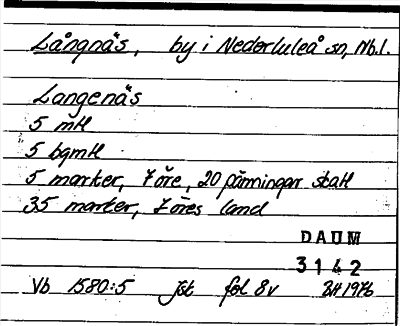 Långnäs, by i Nederluleå sn, Nb.l.
Langenäs
5 mtl
5 bgmtl
5 marker, 7 öre, 20 pänningar skatt
35 marker, 7 öres land
DAUM
3142
Vb 1580:5 jbt fol 8v 1976